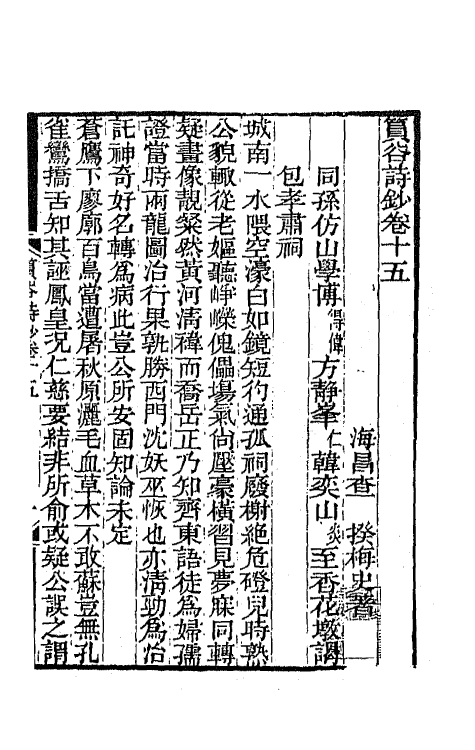 篔谷詩鈔卷十五
海昌查　揆梅史著
同孫仿山學博得偉方靜峯仁韓奕山炎至香花墩謁
包孝肅祠
城南一水隈空濠白如鏡短彴通孤祠廢榭絶危磴兒時熟
公貌輒從老嫗聽崢嶸傀儡場氣尙壓豪橫習見夢寐同轉
疑畫像靚粲然黃河淸褘而喬岳正乃知齊東語徒爲婦孺
證當時兩龍圖治行果孰勝西門沈妖巫恢也亦淸勁爲治
託神奇好名轉爲病此豈公所安固知論未定
蒼鷹下廖廓百鳥當遭屠秋原灑毛血草木不敢蘇豈無孔
雀鸞撟舌知其誣鳳皇況仁慈要結非所俞或疑公誤之謂
篔谷詩鈔卷十五　一